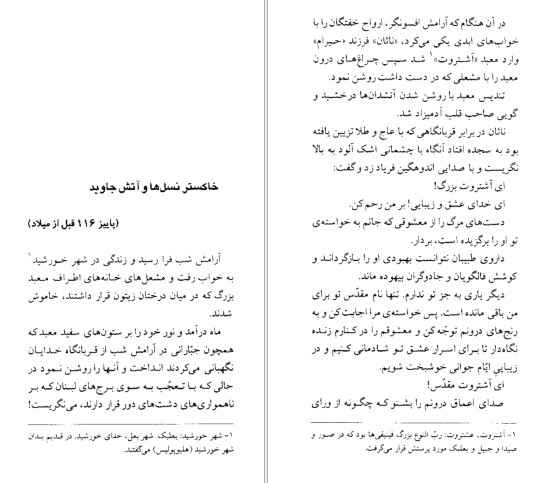 خاکستر نسل‌ها و آتش جاوید
(پاییز ۱۱۶ قبل از میلاد)
آرامش شب فرا رسید و زندگی در شهر خورشید۱
به خواب رفت و مشعل‌های خانه‌های اطراف معبد
بزرگ که در میان درختان زیتون قرار داشتند، خاموش
شدند.
ماه درآمد و نور خود را بر ستون‌های سفید معبد که
همچون جبّارانی در آرامش شب از قربانگاه خدایان
نگهبانی می‌کردند انداخت و آنها را روشن نمود در
حالی که با تعجّب به سوی برج‌های لبنان که بر
ناهمواری‌های دشت‌های دور قرار دارند، می‌نگریست!
۱- شهر خورشید: بعلبک. شهر بعل، خدای خورشید. در قدیم بدان
شهر خورشید (هلیوپولیس) می‌گفتند.
در آن هنگام که آرامش افسونگر، ارواح خفتگان را با
خواب‌های ابدی یکی می‌کرد، «ناثان» فرزند «حیرام»
وارد معبد «آشتروت»۱ شد سپس چراغ‌های درون
معبد را با مشعلی که در دست داشت روشن نمود.
تندیس معبد با روشن شدن آتشدان‌ها درخشید و
گویی صاحب قلب آدمیزاد شد.
ناثان در برابر قربانگاهی که با عاج و طلا تزیین یافته
بود به سجده افتاد آنگاه با چشمانی اشک آلود به بالا
نگریست و با صدایی اندوهگین فریاد زد و گفت:
ای آشتروت بزرگ!
ای خدای عشق و زیبایی! بر من رحم کن.
دست‌های مرگ را از معشوقی که جانم به خواسته‌ی
تو او را برگزیده است، بردار.
داروی طبیبان نتوانست بهبودی او را بازگرداند و
کوشش فالگویان و جادوگران بیهوده ماند.
دیگر یاری به جز تو ندارم. تنها نام مقدّس تو برای
من باقی مانده است. پس خواسته‌ی مرا اجابت کن و به
رنج‌های درونم توجّه کن و معشوقم را در کنارم زنده
نگاه‌دار تا برای اسرار عشق تو شادمانی کنیم و در
زیبایی ایّام جوانی خوشبخت شویم.
ای آشتروت مقدّس!
صدای اعماق درونم را بشنو که چگونه از ورای
۱- آشتروت، عشتروت: ربّ النوع بزرگ فینیقی‌ها بود که در صور و
صیدا و جبیل و بعلبک مورد پرستش قرار می‌گرفت.